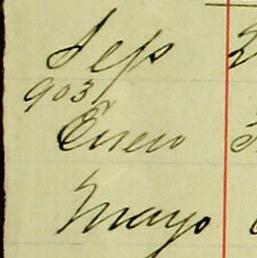 Sep
903
Enero
Mayo